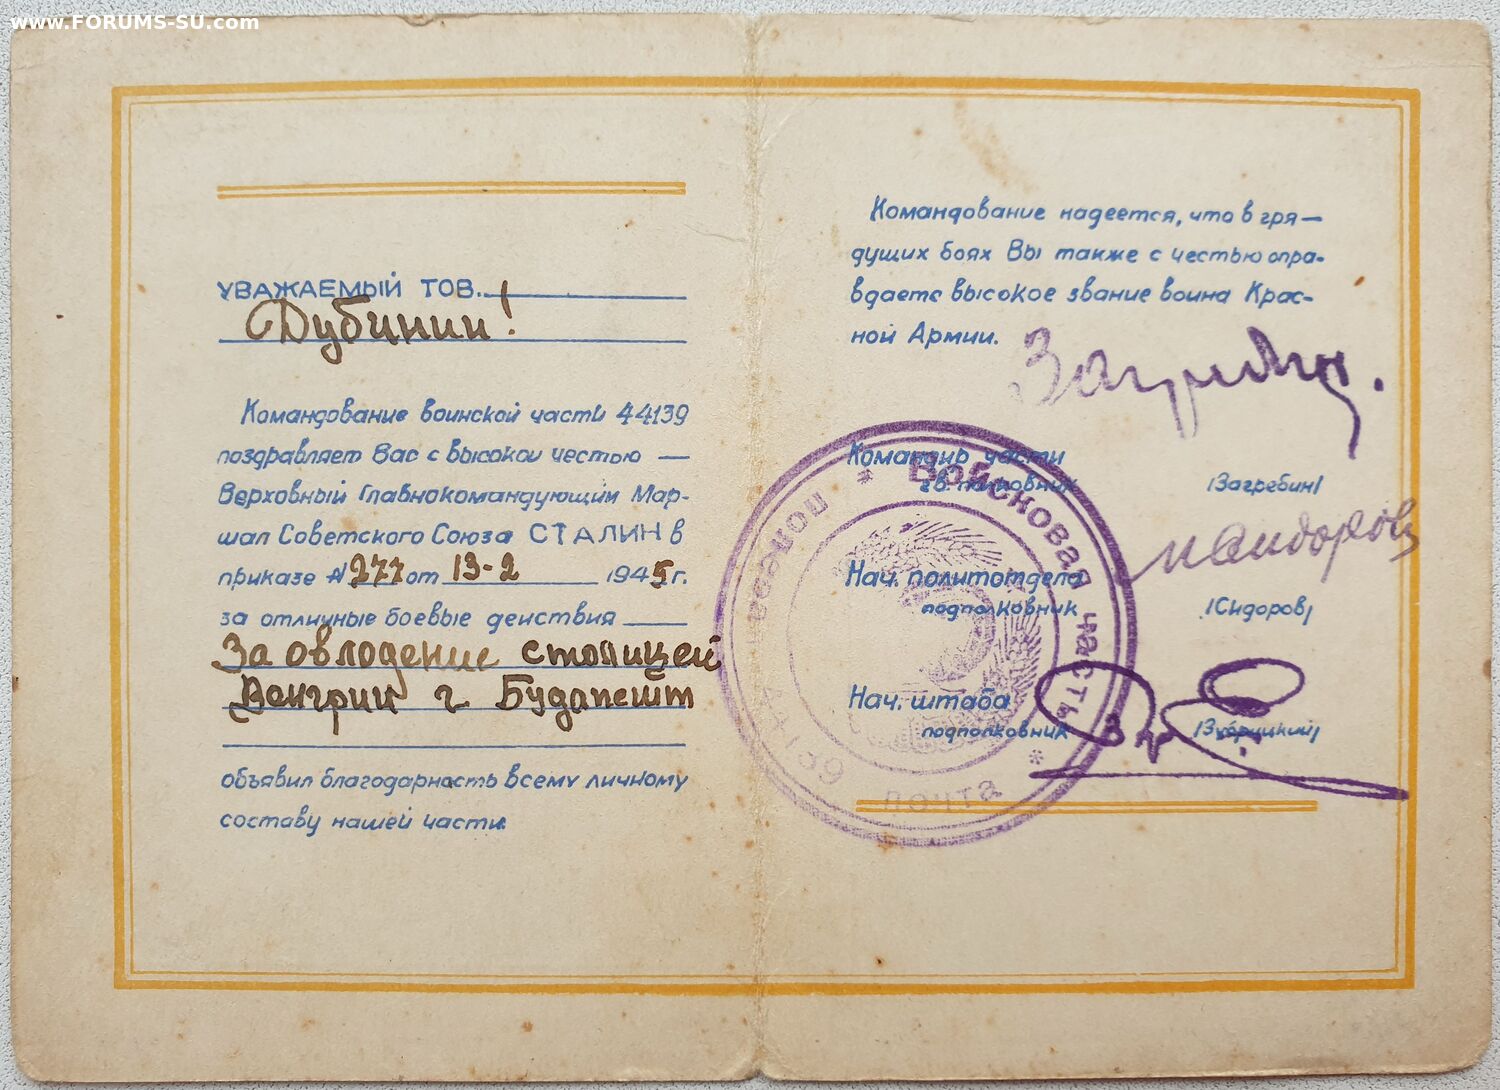 www.FORUMS-SU.com
УВАЖАЕМЫЙ ТОВ.
Дубинин!
Командование воинской части 44139
поздравляет Вас с высокой честью —
Верховный Главнокомандующий Мар-
шал Советского Союза СТАЛИН в
приказе № 277 от 13-2 1945 г.
за отличные боевые действия
За овлодение столицей
Венгрии г. Будапешт
объявил благодарность всему личному
составу нашей части.
Командование надеется, что в гря-
дущих боях Вы также с честью опра-
вдаете высокое звание воина Крас-
ной Армии.
Загребин.
Командир части
гв. полковник /Загребин/
Нач. политотдела
подполковник /Сидоров/
Нач. штаба
подполковник
Войсковая часть * полевая почта 44139 *